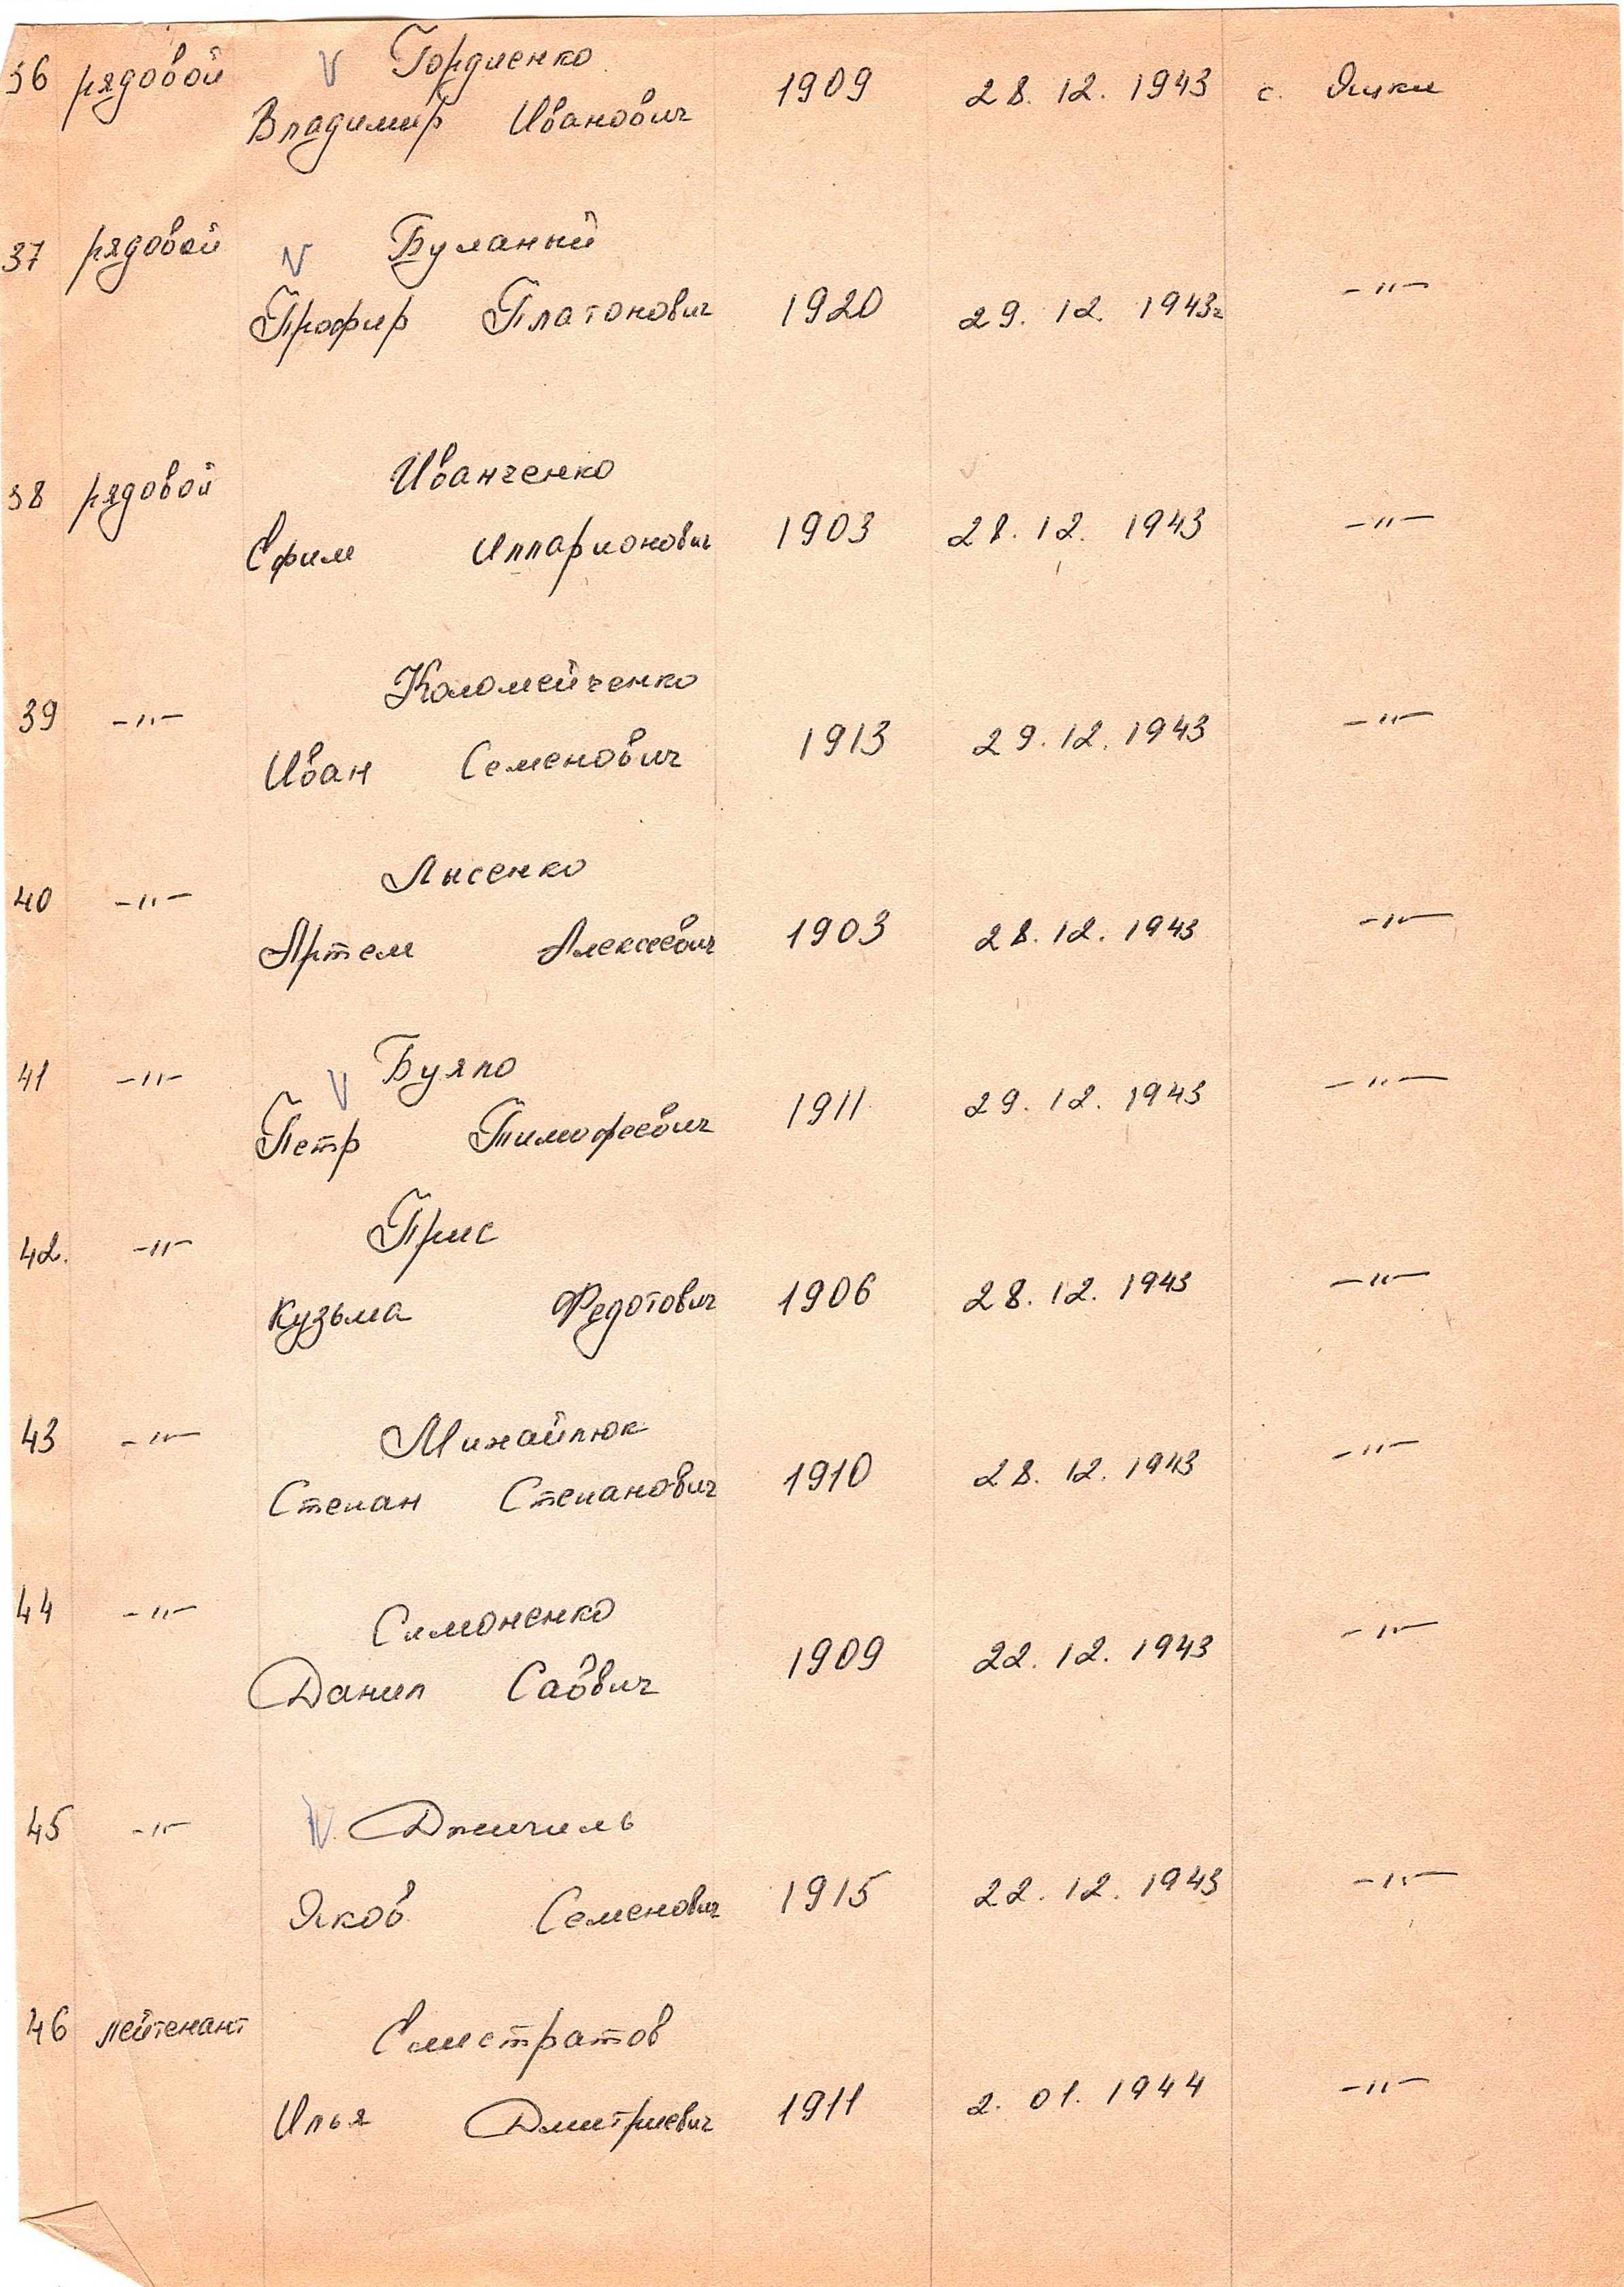 36 рядовой V Гордиенко
Владимир Иванович 1909 28. 12. 1943 с. Ячки
37 рядовой V Буланый
Профир Платонович 1920 29. 12. 1943г -"-
38 рядовой Иванченко
Ефим Илларионович 1903 28. 12. 1943 -"-
39 -"- Коломейченко
Иван Семенович 1913 29. 12. 1943 -"-
40 -"- Лысенко
Артем Алексеевич 1903 28. 12. 1943 -"-
41 -"- V Буяло
Петр Тимофеевич 1911 29. 12. 1943 -"-
42. -"- Прис
Кузьма Федотович 1906 28. 12. 1943 -"-
43 -"- Михайлюк
Степан Степанович 1910 28. 12. 1943 -"-
44 -"- Симоненко
Данил Саввич 1909 22. 12. 1943 -"-
45 -"- V
Яков Семенович 1915 22. 12. 1943 -"-
46 лейтенант Елистратов
Илья Дмитриевич 1911 2. 01. 1944 -"-